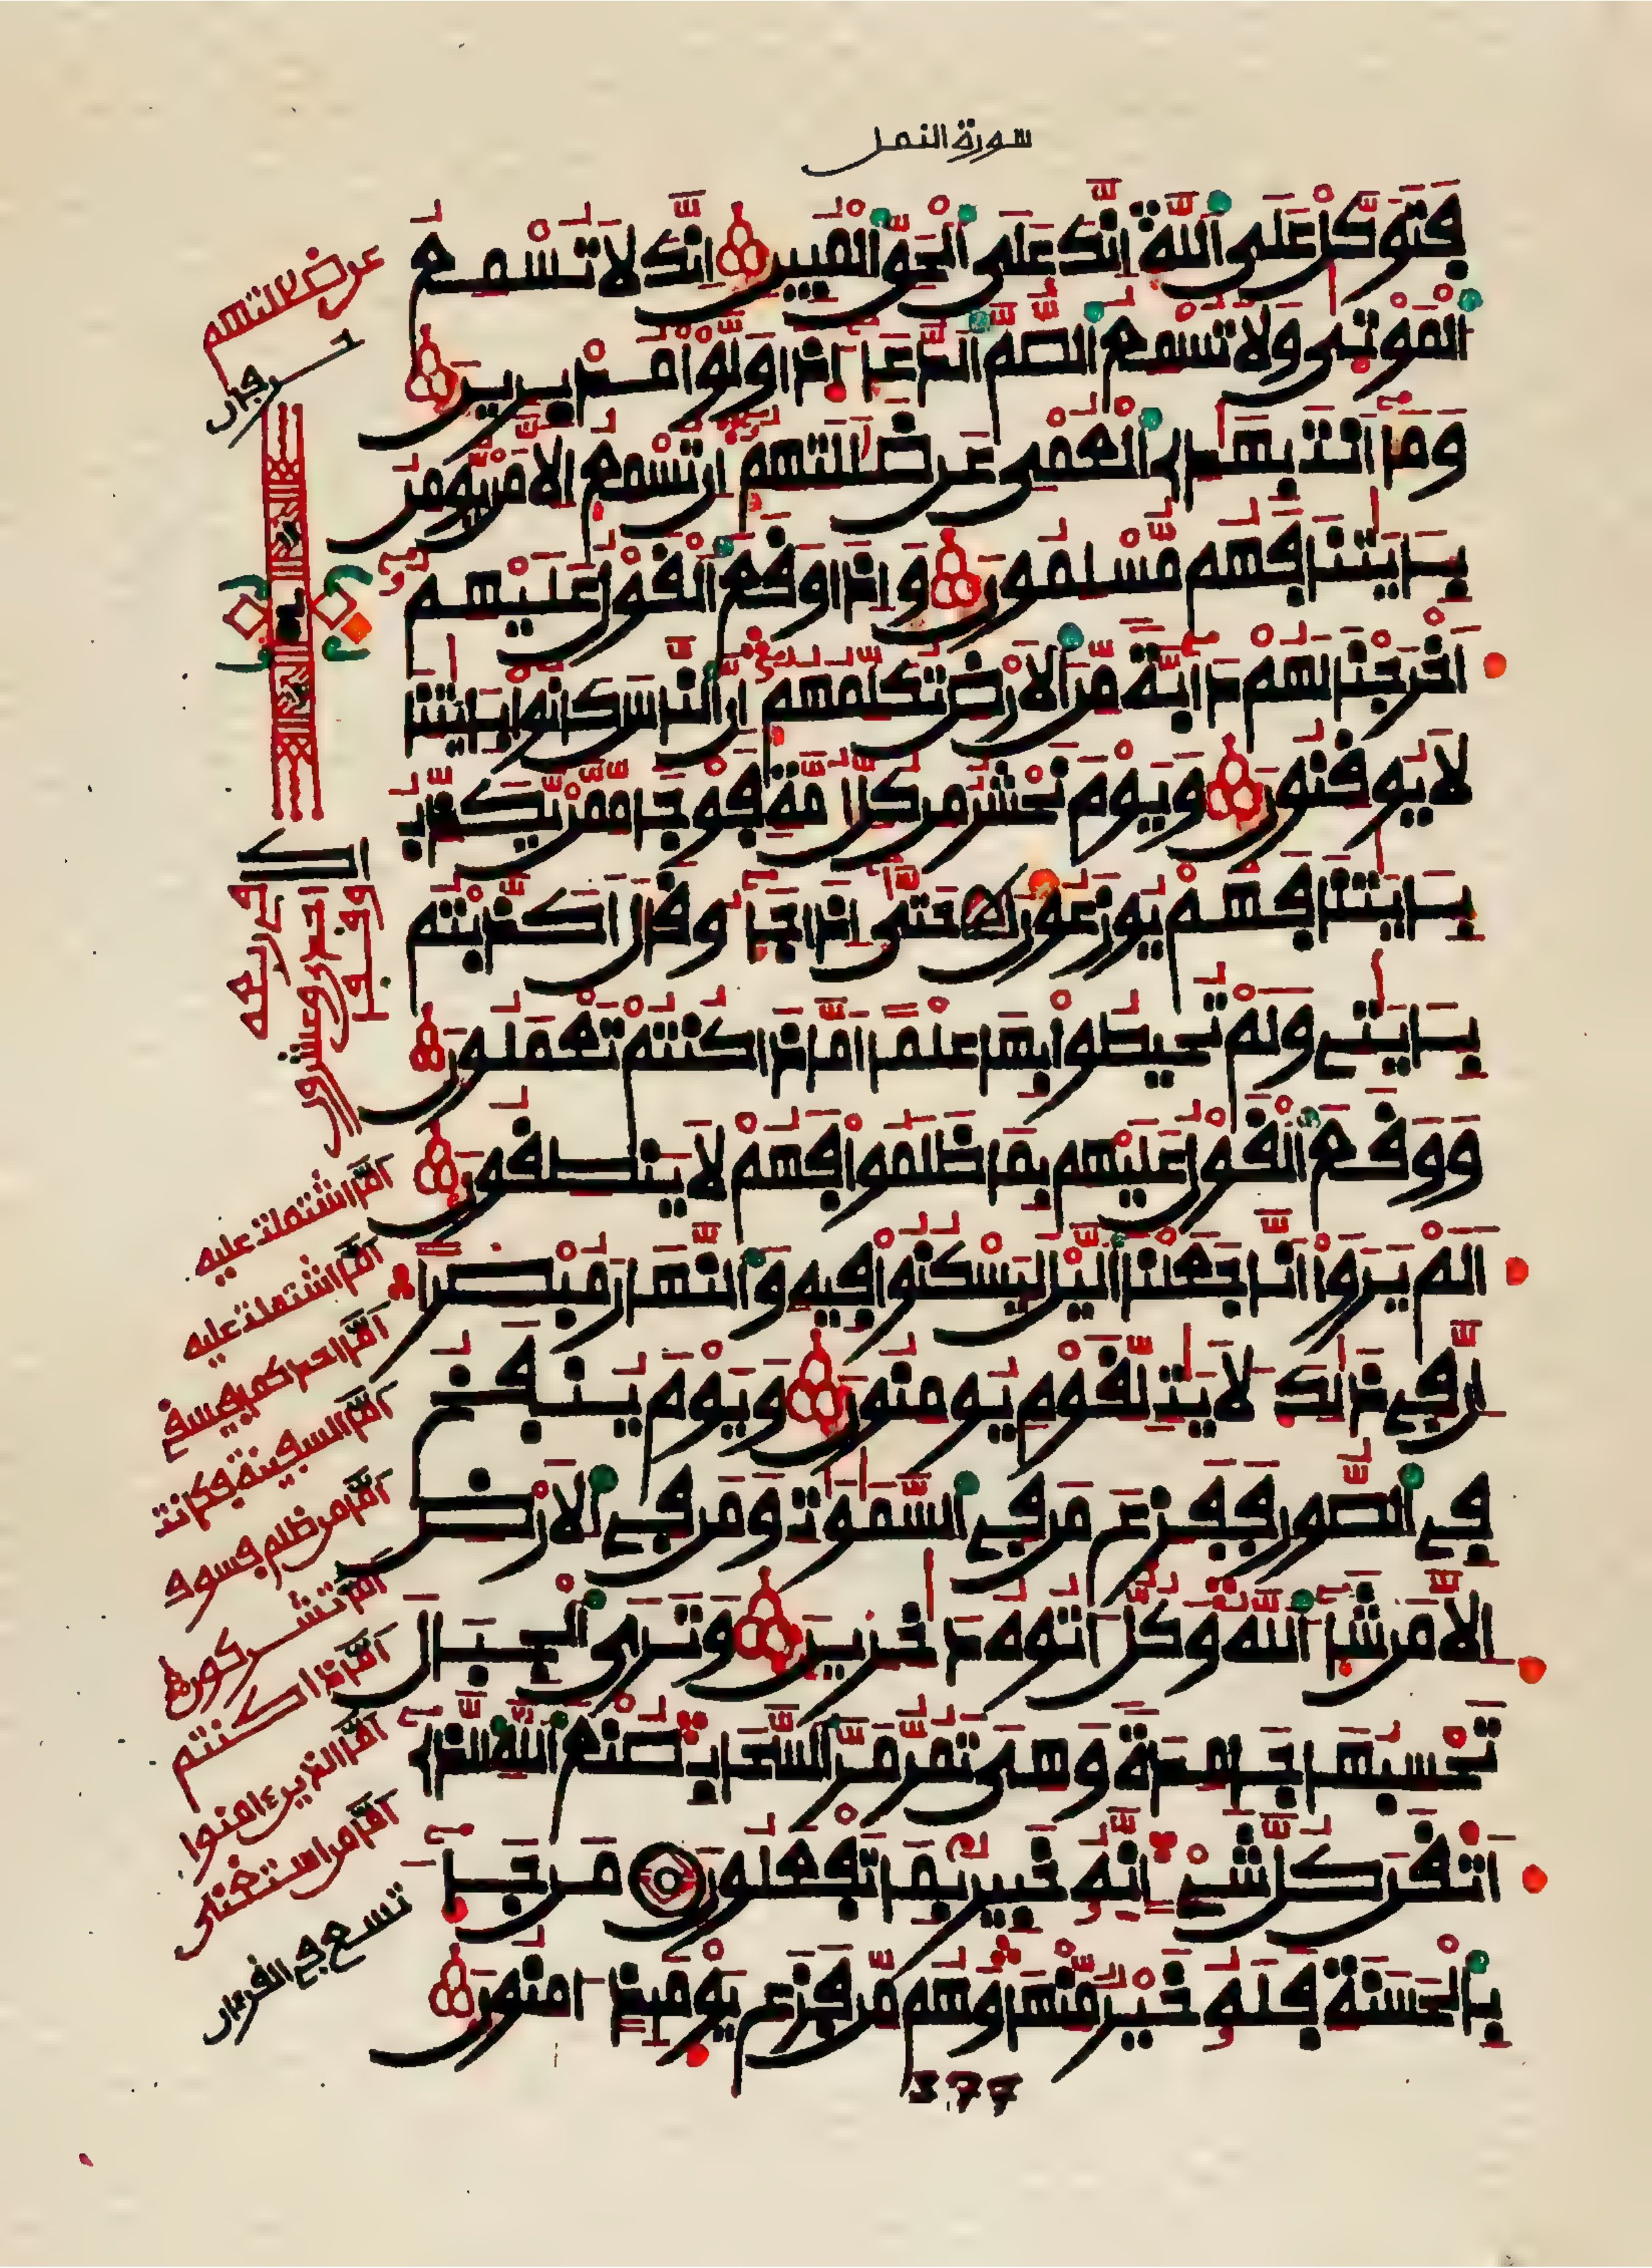 سورة النمل
فَتَوَكَّلْ عَلَى ٱللَّهِ إِنَّكَ عَلَى ٱلْحَقِّ ٱلْمُبِينِ إِنَّكَ لَا تُسْمِعُ
ٱلْمَوْتَىٰ وَلَا تُسْمِعُ ٱلصُّمَّ ٱلدُّعَآءَ اذَا وَلَّوْا مُدْبِرِينَ
وَمَآ أَنتَ بِهَٰدِى ٱلْعُمْىِ عَن ضَلَٰلَتِهِمُۥٓ إِن تُسْمِعُ إِلَّا مَنْ يُّومِنُ
بِـَٔايَٰتِنَا فَهُم مُّسْلِمُونَ وَإِذَا وَقَعَ ٱلْقَوْلُ عَلَيْهِمُۥٓ
أَخْرَجْنَا لَهُمْ دَآبَّةً مِّنَ ٱلَارْضِ تُكَلِّمُهُمُۥٓ إِنَّ ٱلنَّاسَ كَانُوا بِـَٔايَٰتِنَا
لَا يُوقِنُونَ وَيَوْمَ نَحْشُرُ مِن كُلِّ أُمَّةٍ فَوْجًا مِّمَّنْ يُّكَذِّبُ
بِـَٔايَٰتِنَا فَهُمْ يُوزَعُونَ حَتَّىٰٓ إِذَا جَآءُو قَالَ أَكَذَّبْتُم
بِـَٔايَٰتِى وَلَمْ تُحِيطُوا بِهَا عِلْمًا امَّاذَا كُنتُمْ تَعْمَلُونَ
وَوَقَعَ ٱلْقَوْلُ عَلَيْهِم بِمَا ظَلَمُوا فَهُمْ لَا يَنطِقُونَ
أَلَمْ يَرَوَا اَنَّا جَعَلْنَا ٱلَّيْلَ لِيَسْكُنُوا فِيهِ وَٱلنَّهَارَ مُبْصِرًا
إِنَّ فِى ذَٰلِكَ لَأٓيَٰتٍ لِّقَوْمٍ يُومِنُونَ وَيَوْمَ يُنفَخُ
فِى ٱلصُّورِ فَفَزِعَ مَن فِى ٱلسَّمَٰوَٰتِ وَمَن فِى ٱلَارْضِ
إِلَّا مَن شَآءَ ٱللَّهُ وَكُلٌّ اٰتُوهُ دَٰخِرِينَ وَتَرَى ٱلْجِبَالَ
تَحْسِبُهَا جَامِدَةً وَهِىَ تَمُرُّ مَرَّ ٱلسَّحَابِ صُنْعَ ٱللَّهِ ٱلَّذِىٓ
أَتْقَنَ كُلَّ شَىْءٍ اِنَّهُۥ خَبِيرٌۢ بِمَا تَفْعَلُونَ مَن جَآءَ
بِٱلْحَسَنَةِ فَلَهُۥ خَيْرٌ مِّنْهَا وَهُم مِّن فَزَعِ يَوْمَئِذٍ اٰمِنُونَ
377
أمّا اشتملت عليه
أمّا اشتملت عليه
أمّا احدكما فيسقى
أمّا السفينة فكانت
أمّا من ظلم فسوف
أمّا تشركون
أمّا ذا كنتم
أمّا الذين ءامنوا
أمّا من استغنى
تسع فى القرءان